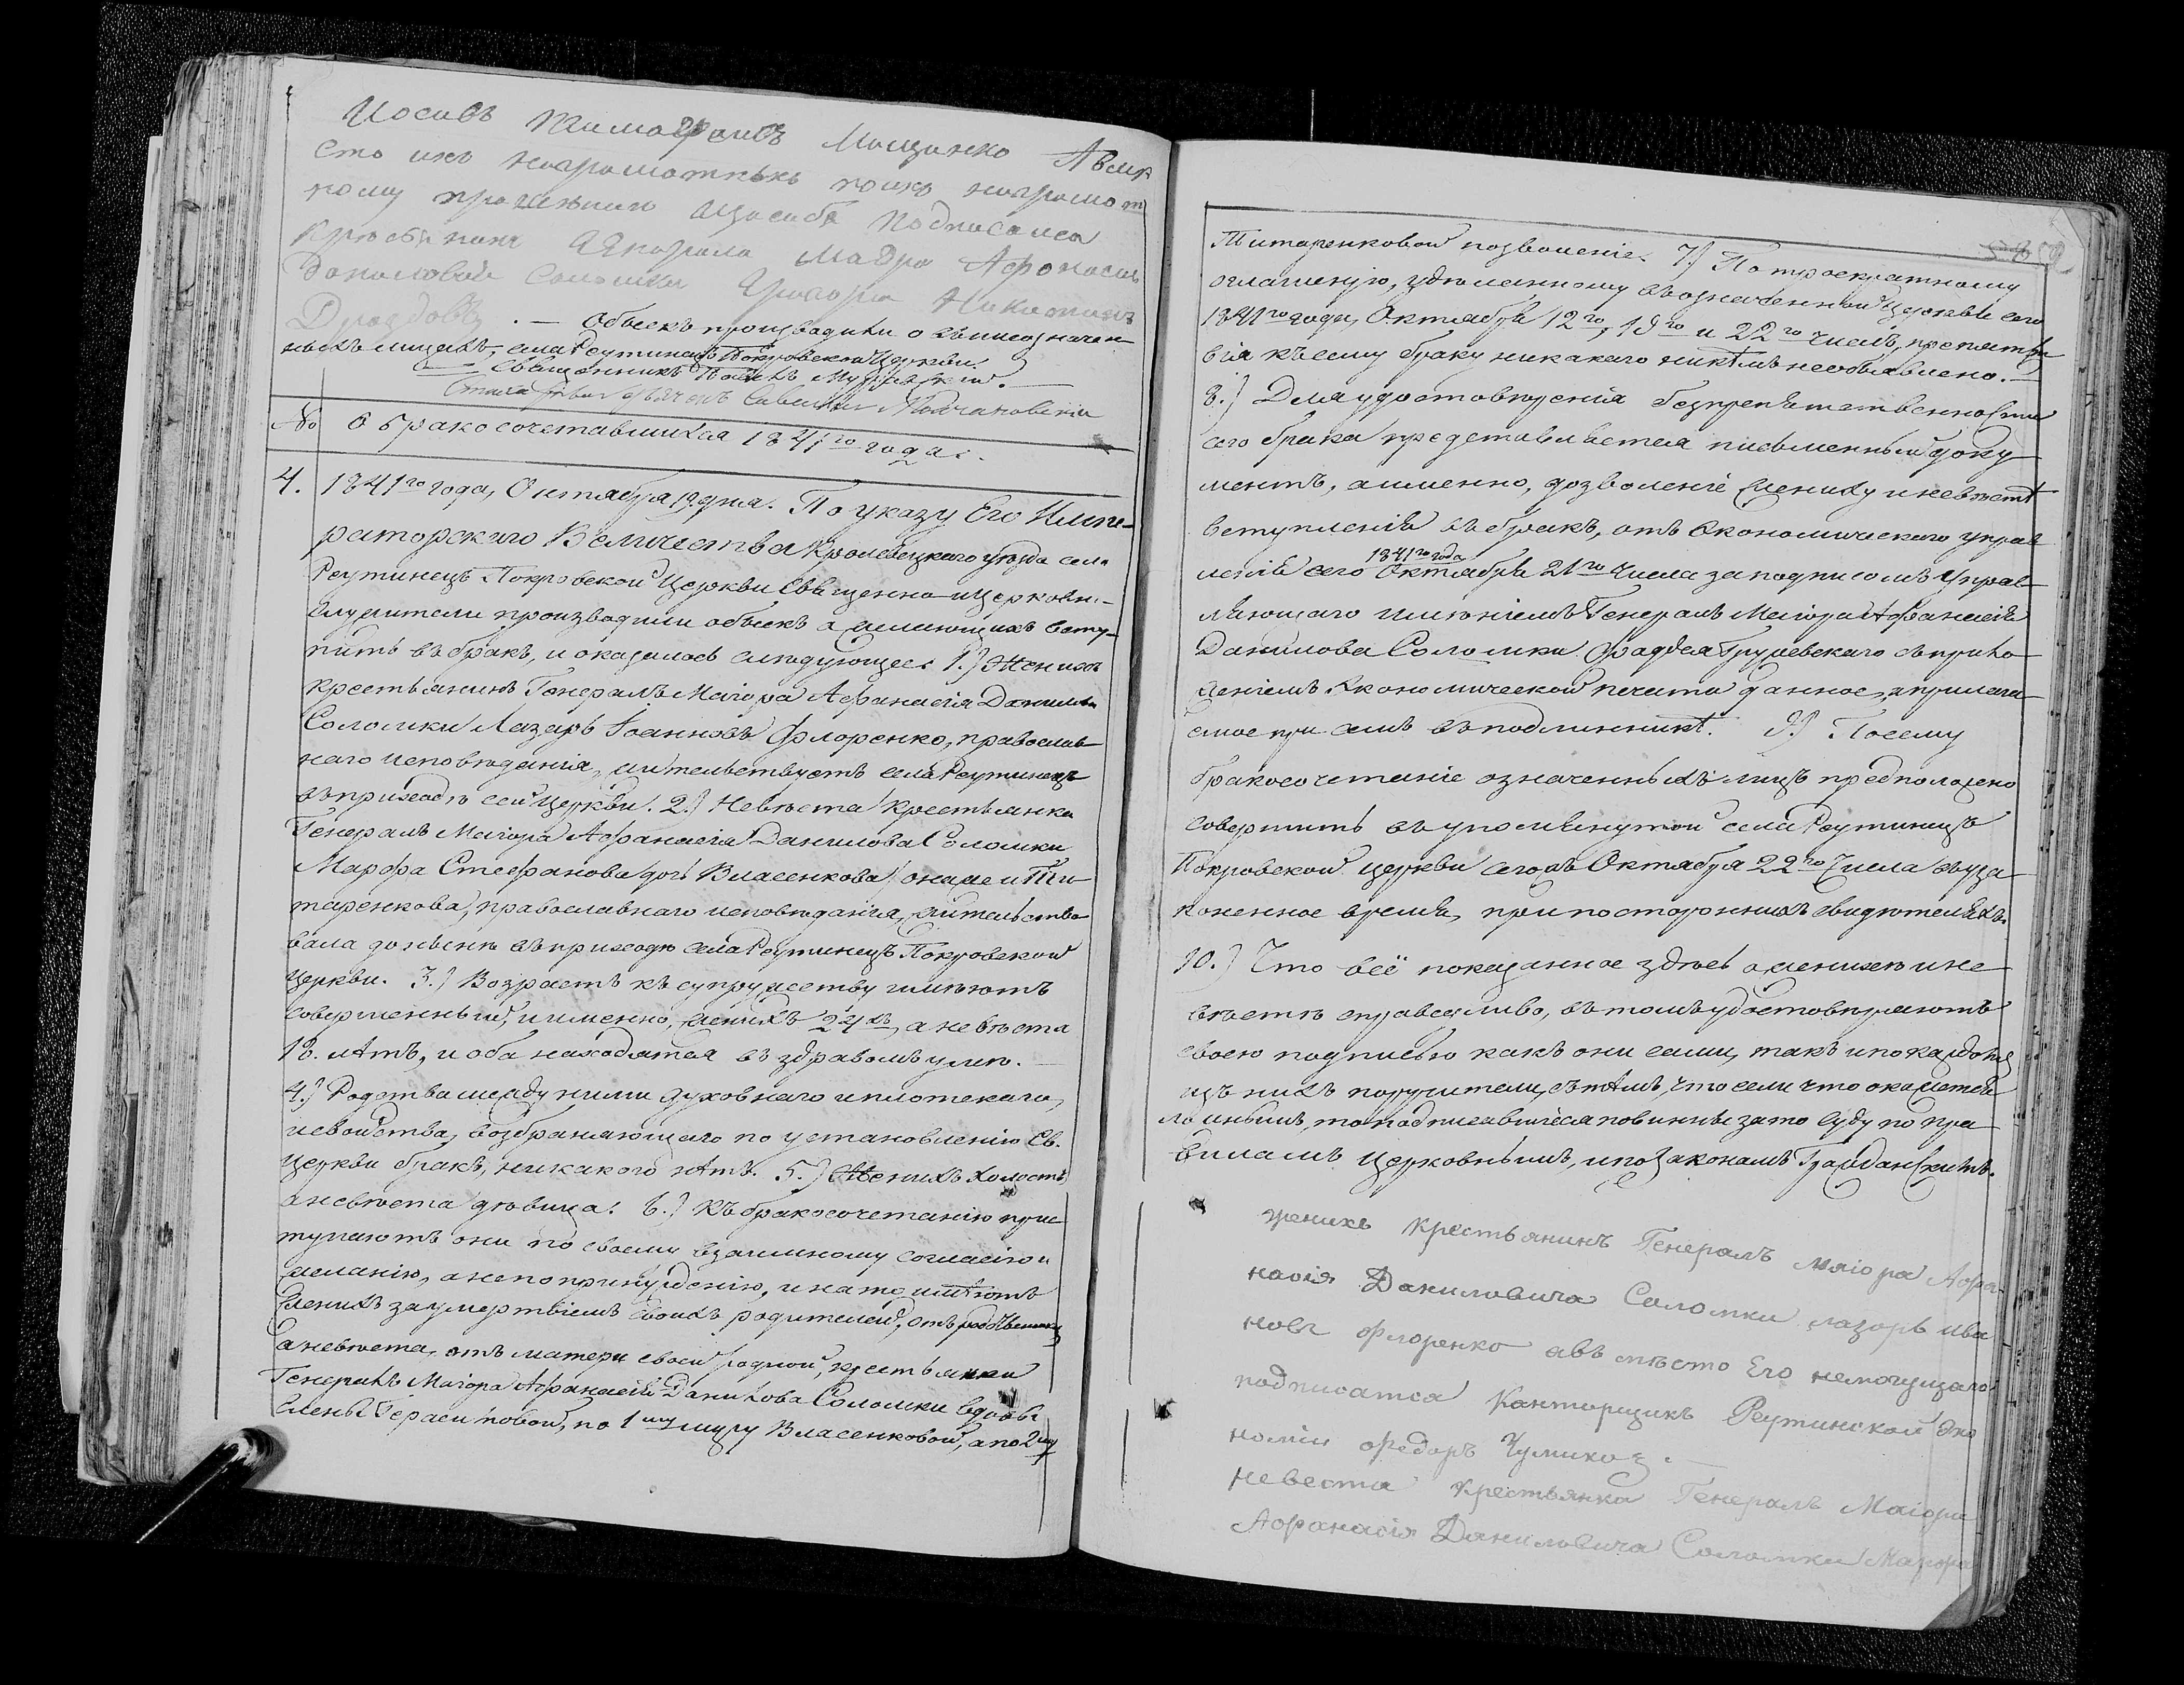 Иосивъ Тимофеивъ Мащенко Авме
сто ихъ нограмотныхъ поихъ нограмот
ному прошению Исосибя Подписался
Крестянинъ Генорала Маера Афонасия
Даниловой Соломки Григори Никитинъ
Дроздовъ. — Обыскъ производили о вышеозначен
ныхъ лицахъ, села Реутинецъ Покровской Церкви
Священникъ
№ О бракосочетавшихся 1841го года.
4. 1841го года, Октября 19 дня. По указу Его Импе-
раторскаго Величества Кролевецкаго уѣзда села
Реутинецъ Покровской Церкви Священно и Церковно-
служители производили обыскъ о желающихъ всту-
пить въ бракъ, и оказалось слѣдующее: 1.) Женихъ
крестьянинъ Генералъ Маіора Афанасія Данилова
Соломки Лазарь Іоанновъ Флоренко, православ
наго исповѣданія, жительствуетъ села Реутинецъ
въ приходѣ сей Церкви. 2.) Невѣста крестьянка
Генералъ Маіора Афанасія Данилова Соломки
Марфа Стефанова дочь Власенкова онаже и Ти
таренкова, православнаго исповѣданія, жительство
вала донынѣ въ приходѣ села Реутинецъ Покровской
Церкви. 3.) Возрастъ къ супружеству имѣютъ
совершенный, и именно, женихъ 24хъ, а невѣста
18. лѣтъ, и оба находятся въ здравомъ умѣ. —
4.) Родства между ними духовнаго и плотскаго,
и свойства, возбраняющаго по установленію Св.
Церкви бракъ, никакого нѣтъ. 5.) Женихъ холостъ
а невѣста дѣвица. 6.) Къ бракосочетанію прис
тупаютъ они по своему взаимному согласію и
желанію, а не по принужденію, и на то имѣютъ
женихъ за умертвіемъ своихъ родителей, отъ родственниковъ
а невѣста, отъ матери своей родной, крестьянки
Генералъ Маіора Афанасія Данилова Соломки вдовы
Елены Герасимовой, по 1му мужу Власенковой, а по 2му
Титаренковой позволеніе. 7.) По троекратному
оглашенію, здѣланному въ означенной Церкви сего
1841го года, Октября 12го, 19го и 22го числъ, препятст
вія къ сему браку никакаго никѣмъ необъявлено. —
8.) Для удостовѣренія безпрепятственности
сего брака представляется письменный доку
ментъ, а именно, дозволеніе жениху и невѣстѣ
вступленія въ бракъ, отъ экономическаго управ
1841го года
ленія сего Октября 21го числа за подписомъ Управ
ляющаго имѣніемъ Генералъ Маіора Афанасія
Данилова Соломки Фаддея Грушевскаго съ прило
женіемъ экономической печати данное, и прилага
емое при семъ въ подлинникѣ. 9.) Посему
бракосочетаніе означенныхъ лицъ предположено
совершить въ упомянутой села Реутинецъ
Покровской церкви сегожъ Октября 22го числа въ уза
коненное время, при постороннихъ свидѣтеляхъ.
10.) Что всё показанное здѣсь о женихѣ и не
вѣстѣ справедливо, въ томъ удостовѣряютъ
своею подписью какъ они сами, такъ и по каждому
изъ нихъ поручители, съ тѣмъ, что если что окажется
ложнымъ, то подписавшіеся повинны за то суду по пра
виламъ церковнымъ, и по законамъ Гражданскимъ.
женихъ крестьянинъ Генералъ маіора Афа
насія Даниловича Соломки лазорь ива
новъ Флоренко авъ мѣсто Его немогущаго
подписатся Канторщикъ Реутинской Эко
номіи Федоръ Чумико
Невеста крестьянка Генералъ Маіора
Афанасія Даниловича Соломки Марфа